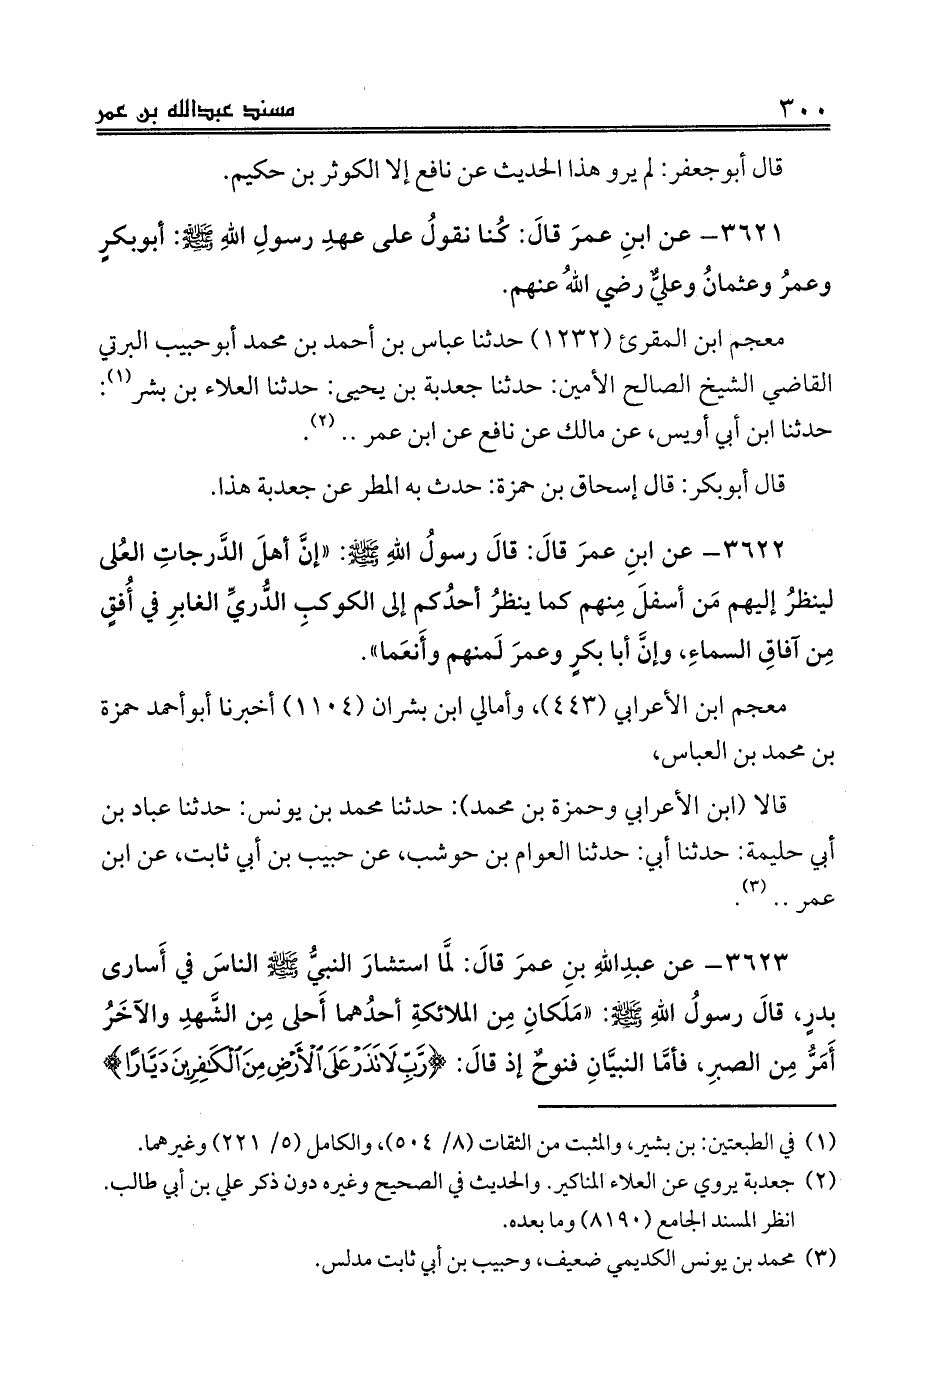 ٣٠٠ مسند عبدالله بن عمر
قال أبوجعفر: لم يرو هذا الحديث عن نافع إلا الكوثر بن حكيم.
٣٦٢١- عن ابنِ عمرَ قالَ: كُنا نقولُ على عهدِ رسولِ اللهِ ﷺ: أبوبكرٍ
وعمرُ وعثمانُ وعليٌّ رضي اللهُ عنهم.
معجم ابن المقرئ (١٢٣٢) حدثنا عباس بن أحمد بن محمد أبوحبيب البرتي
القاضي الشيخ الصالح الأمين: حدثنا جعدبة بن يحيى: حدثنا العلاء بن بشر(١):
حدثنا ابن أبي أويس، عن مالك عن نافع عن ابن عمر .. (٢).
قال أبوبكر: قال إسحاق بن حمزة: حدث به المطر عن جعدبة هذا.
٣٦٢٢- عن ابنِ عمرَ قالَ: قالَ رسولُ اللهِ ﷺ: «إنَّ أهلَ الدَّرجاتِ العُلى
لينظرُ إليهم مَن أسفلَ مِنهم كما ينظرُ أحدُكم إلى الكوكبِ الدُّريِّ الغابرِ في أُفقٍ
مِن آفاقِ السماءِ، وإنَّ أبا بكرٍ وعمرَ لَمنهم وأَنعَما».
معجم ابن الأعرابي (٤٤٣)، وأمالي ابن بشران (١١٠٤) أخبرنا أبوأحمد حمزة
بن محمد بن العباس،
قالا (ابن الأعرابي وحمزة بن محمد): حدثنا محمد بن يونس: حدثنا عباد بن
أبي حليمة: حدثنا أبي: حدثنا العوام بن حوشب، عن حبيب بن أبي ثابت، عن ابن
عمر .. (٣).
٣٦٢٣- عن عبدِاللهِ بنِ عمرَ قالَ: لمَّا استشارَ النبيُّ ﷺ الناسَ في أَسارى
بدرٍ، قالَ رسولُ اللهِ ﷺ: «مَلَكانِ مِن الملائكةِ أحدُهما أَحلى مِن الشَّهدِ والآخَرُ
أمَرُّ مِن الصبرِ، فأمَّا النبيَّانِ فنوحٌ إذ قالَ: ﴿رَّبِّ لَا تَذَرْ عَلَى ٱلْأَرْضِ مِنَ ٱلْكَٰفِرِينَ دَيَّارًا﴾
(١) في الطبعتين: بن بشير، والمثبت من الثقات (٨/ ٥٠٤)، والكامل (٥/ ٢٢١) وغيرهما.
(٢) جعدبة يروي عن العلاء المناكير. والحديث في الصحيح وغيره دون ذكر علي بن أبي طالب.
انظر المسند الجامع (٨١٩٠) وما بعده.
(٣) محمد بن يونس الكديمي ضعيف، وحبيب بن أبي ثابت مدلس.